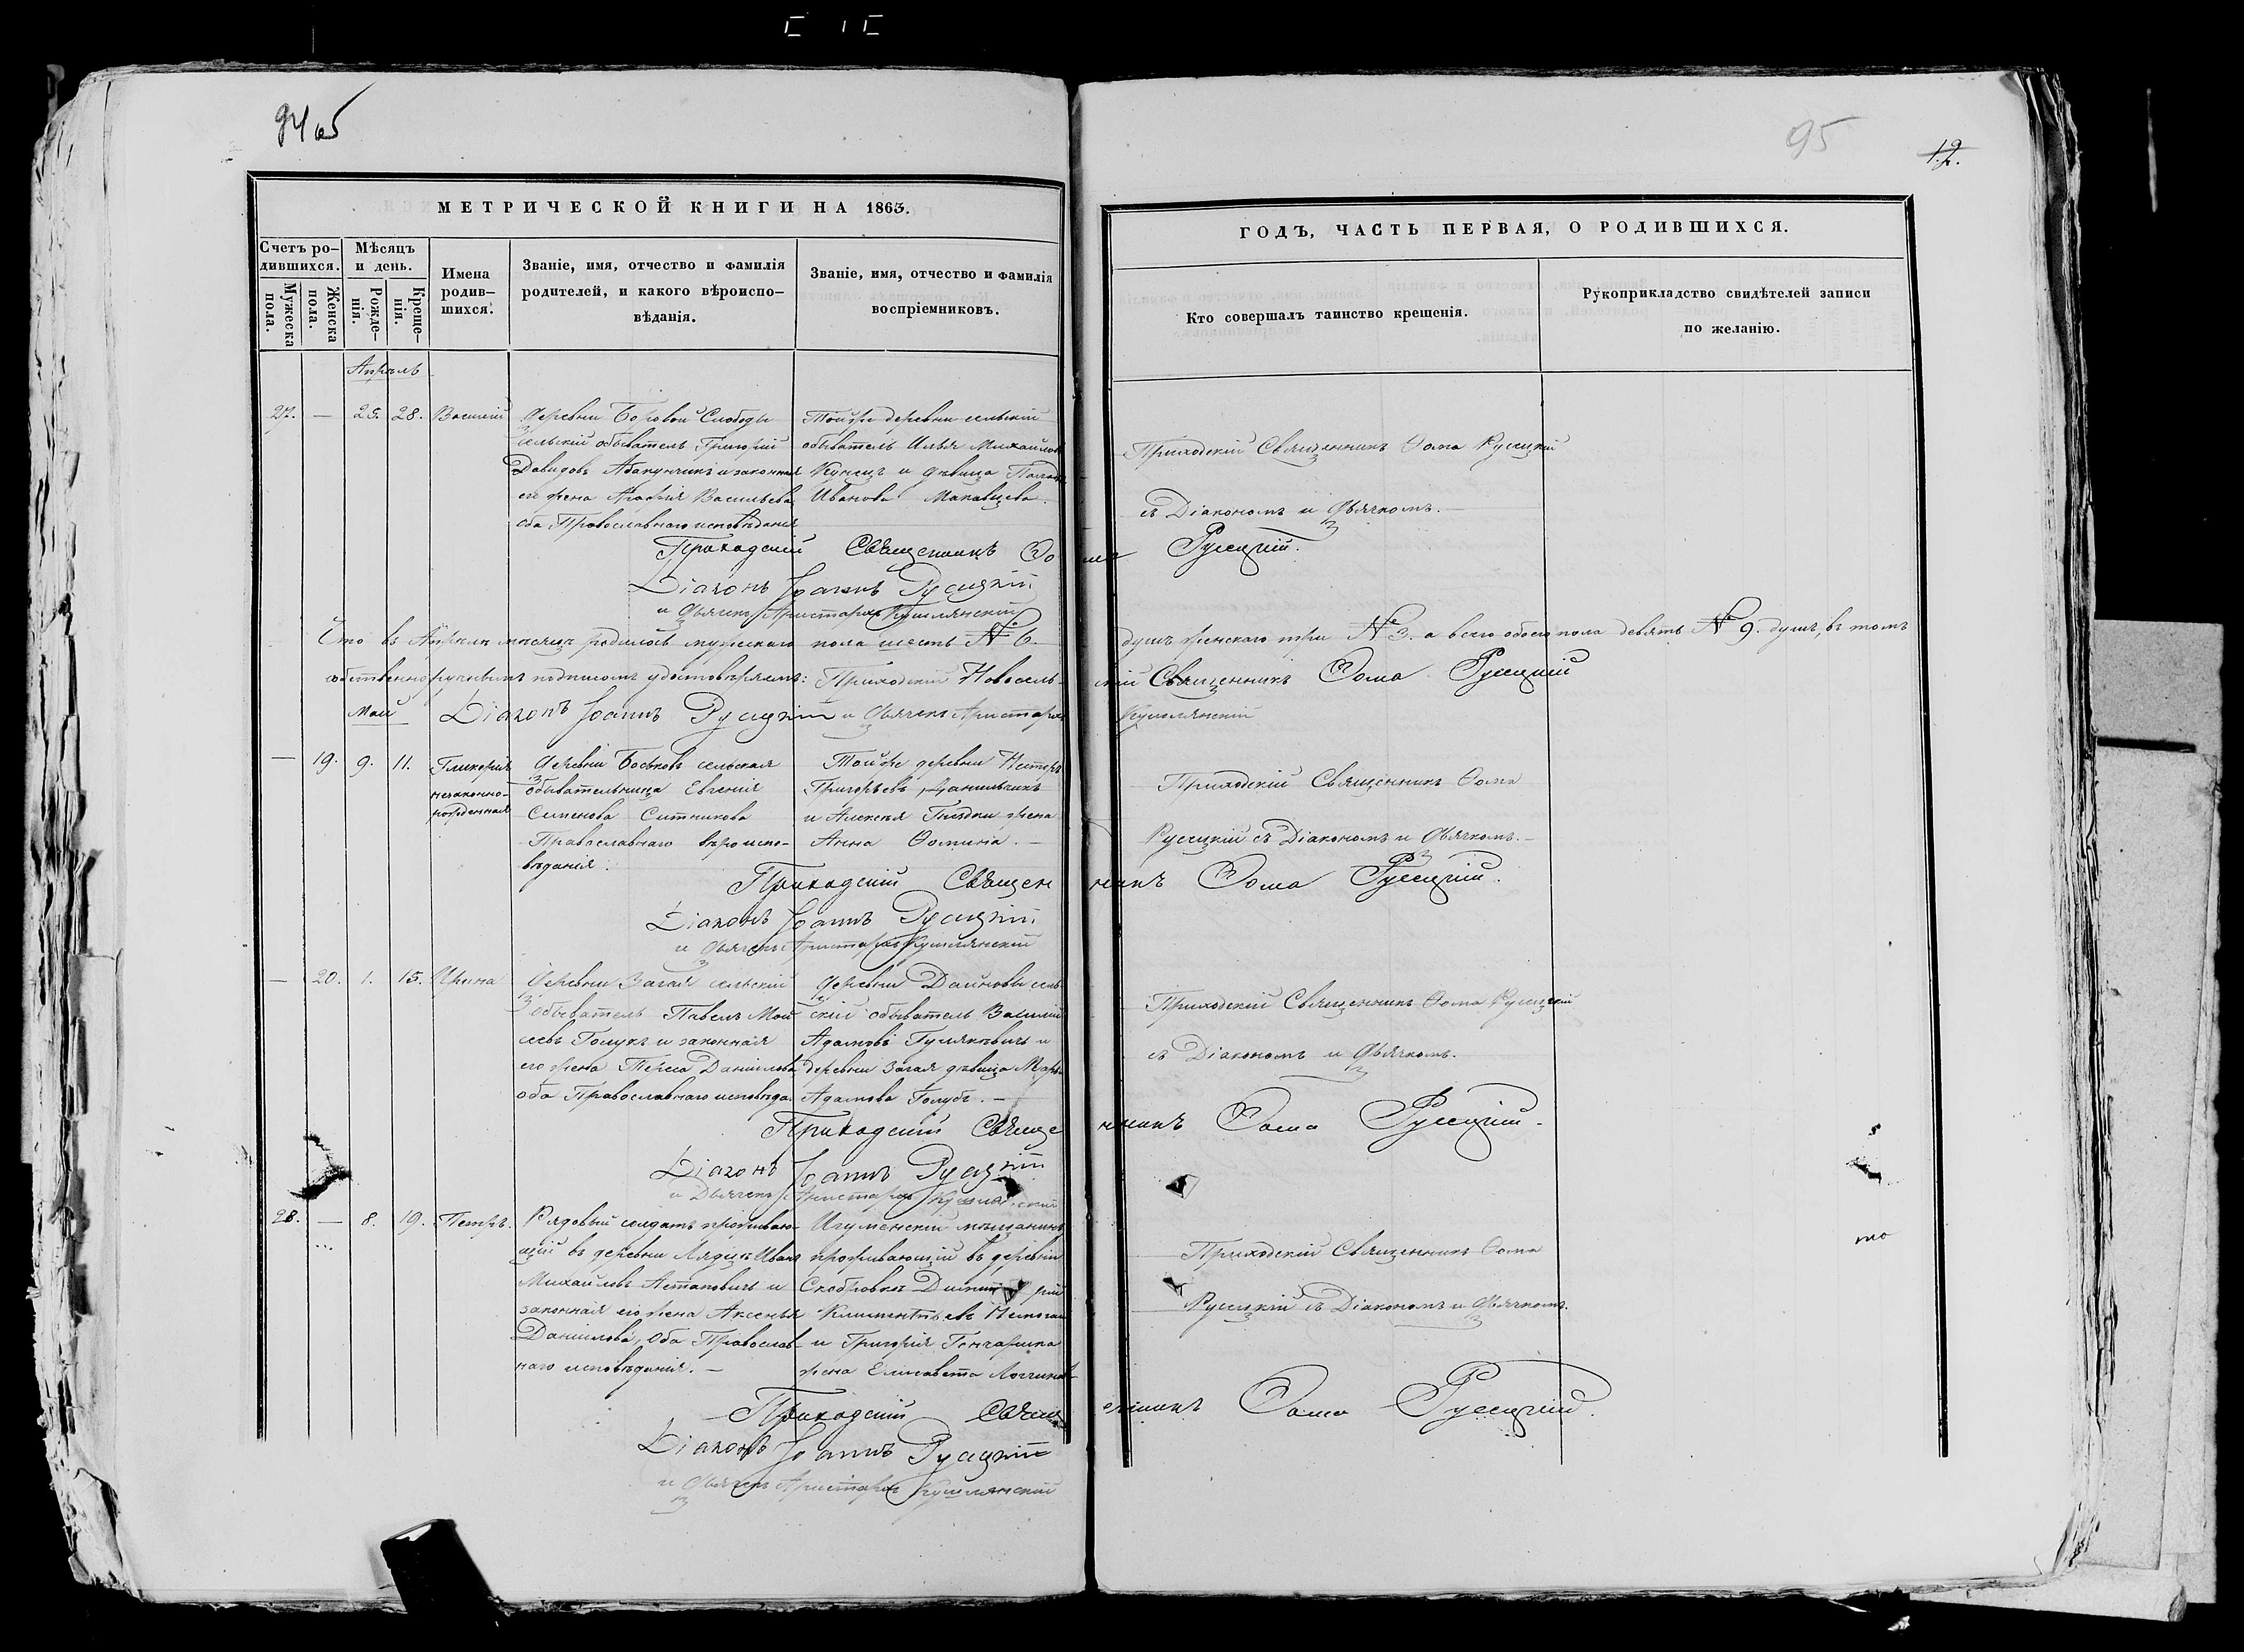 94 об
95
12.
МЕТРИЧЕСКОЙ КНИГИ НА 1863.
ГОДЪ, ЧАСТЬ ПЕРВАЯ, О РОДИВШИХСЯ.
Счетъ ро-
дившихся.
Мужеска
пола.
Женска
пола.
Мѣсяцъ
и день.
Рожде-
нія.
Креще-
нія.
Имена
родив-
шихся.
Званіе, имя, отчество и фамилія
родителей, и какого вѣроиспо-
вѣданія.
Званіе, имя, отчество и фамилія
воспріемниковъ.
Кто совершалъ таинство крещенія.
Рукоприкладство свидѣтелей записи
по желанію.
Апрѣль
27. — 25. 28. Василій
Деревни Боровой Слободы
сельскій обыватель Григорій
Давидовъ и законная
его жена Агафія Васильева
оба Православнаго исповѣданія
Тойже деревни сельскій
обыватель Илья Михайловъ
Кунецъ и дѣвица
Иванова
Приходскій Священникъ Ѳома Русецкій
съ Діакономъ и Дьячкомъ.
Приходскій Священникъ Ѳома Русецкій.
Діаконъ Іоаннъ Русецкій
и Дьячекъ Аристархъ Кушлянскій
Что въ Апрѣлѣ мѣсяцѣ родилось мужескаго пола шесть № 6. душъ женскаго три № 3. а всего обоего пола девять № 9. душъ, въ томъ
собственноручнымъ подписомъ удостовѣряемъ: Приходскій Священникъ Ѳома Русецкій
Діаконъ Іоаннъ Русецкій и Дьячекъ Аристархъ Кушлянскій
Май
— 19. 9. 11. Гликерія
незаконно-
рожденная
Деревни сельская
обывательница Евгенія
Семенова Ситникова
Православнаго вѣроиспо-
вѣданія.
Тойже деревни Нестеръ
Григорьевъ Данильчикъ
и Алексѣя жена
Анна Ѳомина. —
Приходскій Священникъ Ѳома
Русецкій съ Діакономъ и Дьячкомъ. —
Приходскій Священникъ Ѳома Русецкій.
Діаконъ Іоаннъ Русецкій
и Дьячекъ Аристархъ Кушлянскій
— 20. 1. 15. Ирина
Деревни Загая сельскій
обыватель Павелъ Мои-
сеевъ и законная
его жена Данилова
оба Православнаго исповѣда.
Деревни Даиновы сель-
скій обыватель Василій
Адамовъ и
деревни Загая дѣвица
Адамова Голубъ. —
Приходскій Священникъ Ѳома Русецкій
съ Діакономъ и Дьячкомъ.
Приходскій Священникъ Ѳома Русецкій.
Діаконъ Іоаннъ Русецкій
и Дьячекъ Аристархъ Кушлянскій
28. — 8. 19. Петръ.
Рядовый солдатъ прожива-
щій въ деревни Иванъ
Михайловъ Астаповичъ и
законная его жена Аксенья
Данилова, оба Православ-
наго исповѣданія. —
Игуменскій мѣщанинъ
проживающій въ деревни
Скобровкѣ
и Григорія Гончарика
жена Елисавета
Приходскій Священникъ Ѳома
Русецкій съ Діакономъ и Дьячкомъ.
Приходскій Священникъ Ѳома Русецкій.
Діаконъ Іоаннъ Русецкій
и Дьячекъ Аристархъ Кушлянскій